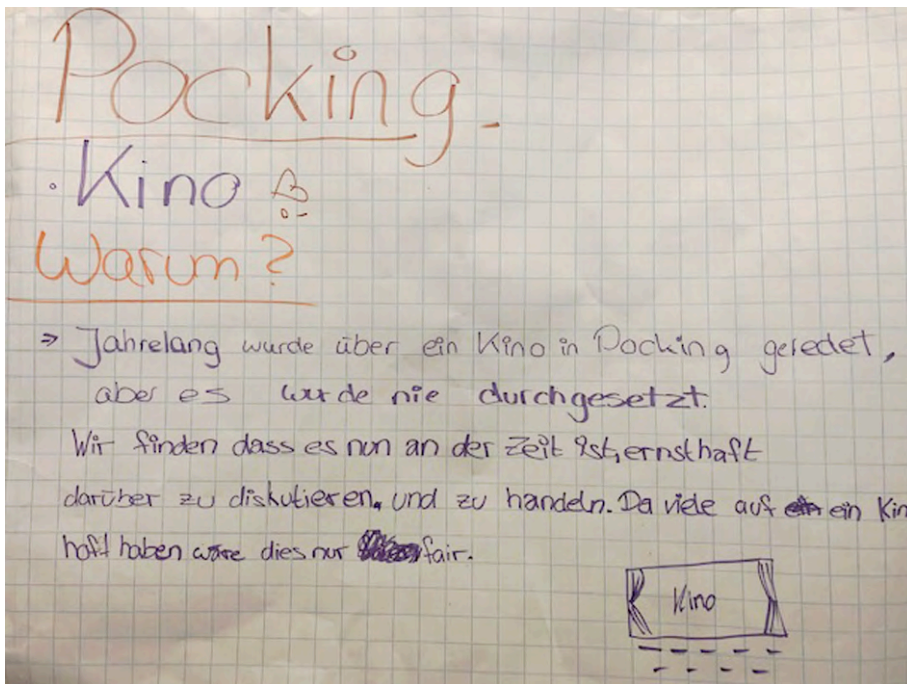 Pocking.
· Kino
Warum?
⇒ Jahrelang wurde über ein Kino in Pocking geredet,
aber es wurde nie durchgesetzt.
Wir finden dass es nun an der Zeit ist, ernsthaft
darüber zu diskutieren, und zu handeln. Da viele auf ein Kin
hoft haben wäre dies nur fair.
Kino